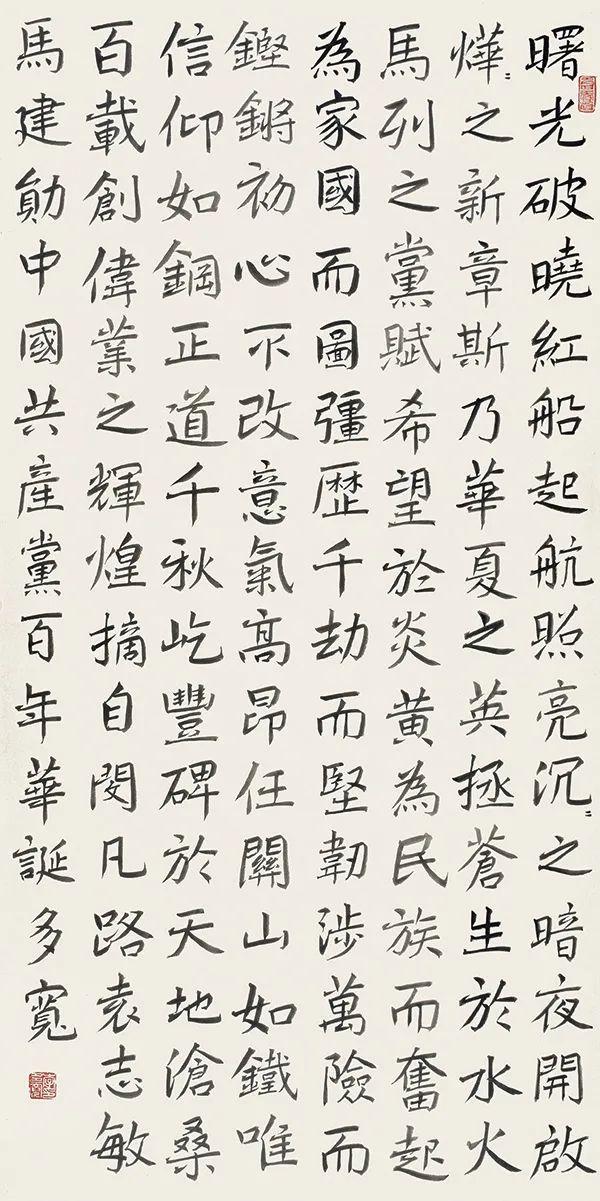 曙光破曉紅船起航照亮沉〻之暗夜開啟
燁〻之新章斯乃華夏之英拯蒼生於水火
馬列之黨賦希望於炎黃為民族而奮起
為家國而圖彊歷千劫而堅韌涉萬險而
鏗鏘初心不改意氣高昂任關山如鐵唯
信仰如鋼正道千秋屹豐碑於天地滄桑
百載創偉業之輝煌摘自閔凡路袁志敏
馬建勛中國共產黨百年華誕多寬